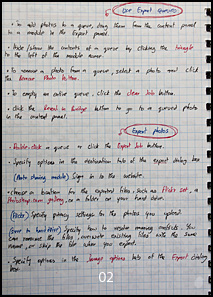 Use Export Queues
• To add photos to a queue, drag them from the content panel
to a module in the Export panel.
• Hide/show the contents of a queue by clicking the triangle
to the left of the module name.
• To remove a photo from a queue, select a photo and click
the Remove Photo button.
• To empty an entire queue, click the Clear Job button.
• Click the Reveal in Bridge button to go to a queued photo
in the content panel.
Export photos
• Double-click a queue or click the Export Job button.
• Specify options in the destination tab of the export dialog box
• (Photo sharing module) Sign in to the website.
• choose a location for the exported files, such as Flickr set, a
Photoshop.com gallery, or a folder on your hard drive.
(Flickr) Specify privacy settings for the photos you upload
(Save to hard drive) Specify how to resolve naming conflicts. You
can rename the files, overwrite existing files with the same
name, or skip the file when you export.
• Specify options in the Image options tab of the Export dialog
box.
02